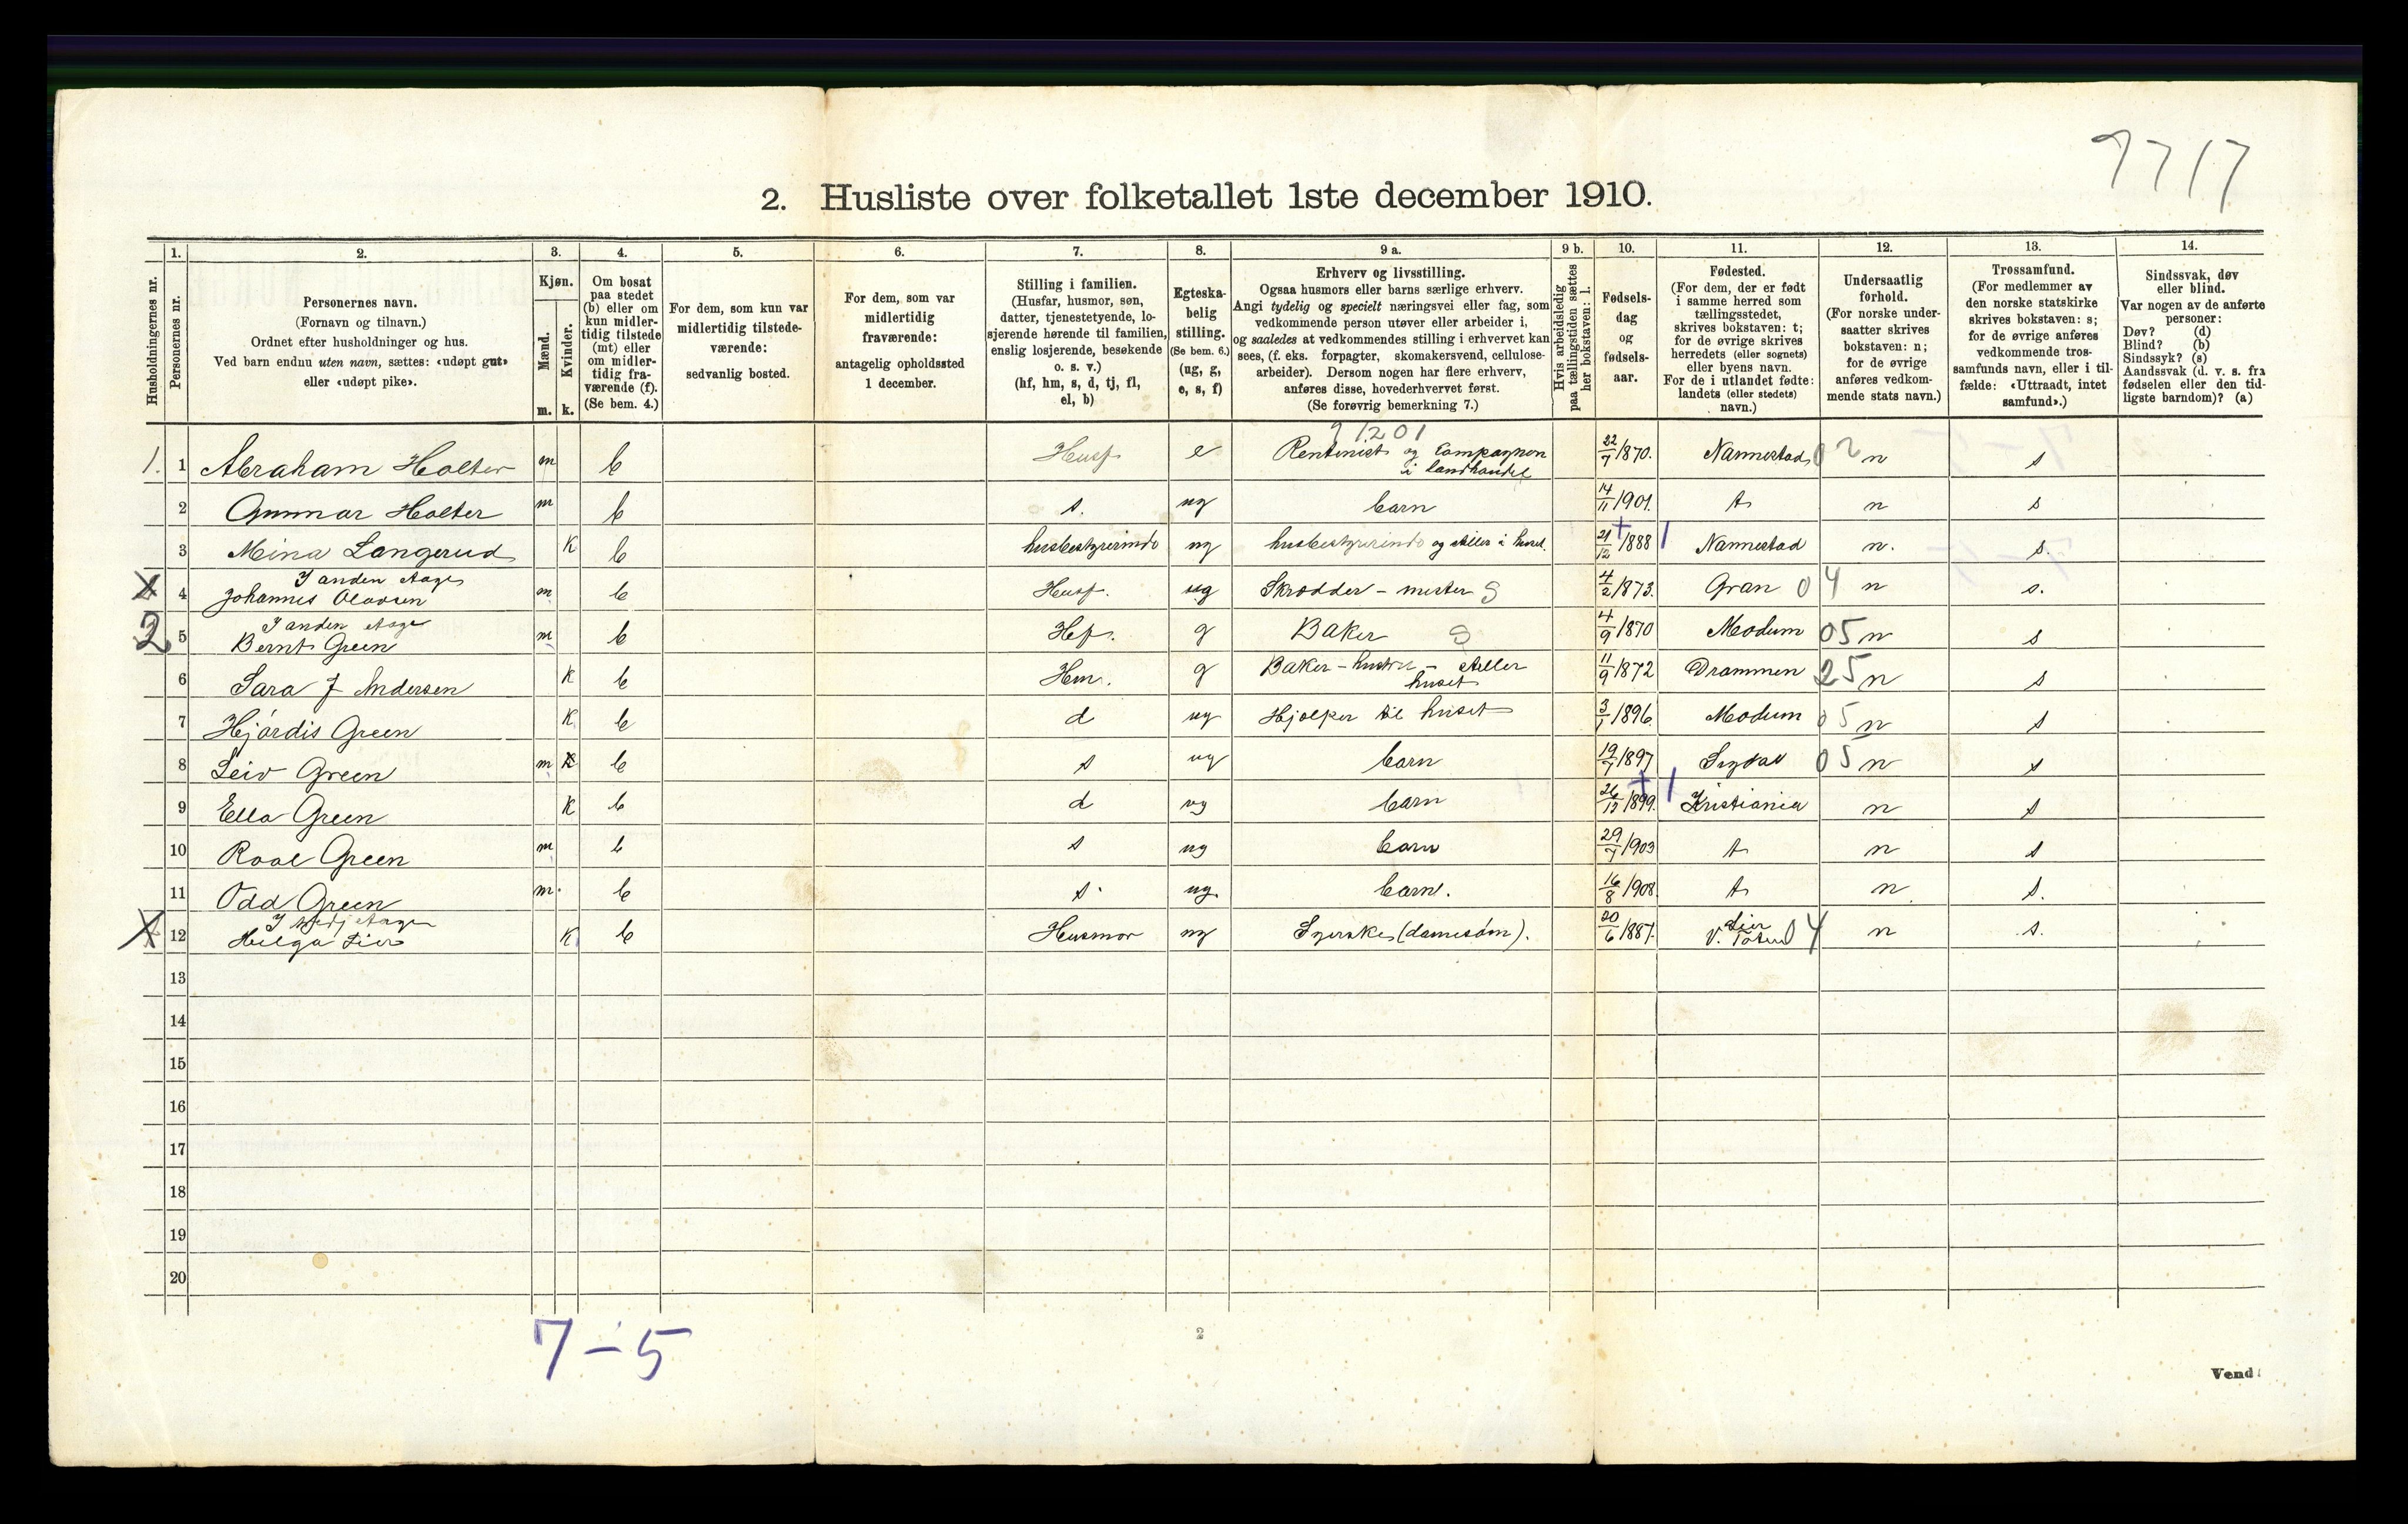 7717
2. Husliste over folketallet 1ste december 1910.
Husholdningernes nr.
1.
Personernes nr.
2.
Personernes navn.
(Fornavn og tilnavn.)
Ordnet efter husholdninger og hus.
Ved barn endnu uten navn, sættes: «udøpt gut»
eller «udøpt pike».
3.
Kjøn.
Mænd.
m.
Kvinder.
k.
4.
Om bosat
paa stedet
(b) eller om
kun midler-
tidig tilstede
(mt) eller
om midler-
tidig fra-
værende (f).
(Se bem. 4.)
5.
For dem, som kun var
midlertidig tilstede-
værende:
sedvanlig bosted.
6.
For dem, som var
midlertidig
fraværende:
antagelig opholdssted
1 december.
7.
Stilling i familien.
(Husfar, husmor, søn,
datter, tjenestetyende, lo-
sjerende hørende til familien,
enslig losjerende, besøkende
o. s. v.)
(hf, hm, s, d, tj, fl,
el, b)
8.
Egteska-
belig
stilling.
(Se bem. 6.)
(ug, g,
e, s, f)
9 a.
Erhverv og livsstilling.
Ogsaa husmors eller barns særlige erhverv.
Angi tydelig og specielt næringsvei eller fag, som
vedkommende person utøver eller arbeider i,
og saaledes at vedkommendes stilling i erhvervet kan
sees, (f. eks. forpagter, skomakersvend, cellulose-
arbeider). Dersom nogen har flere erhverv,
anføres disse, hovederhvervet først.
(Se forøvrig bemerkning 7.)
9 b.
Hvis arbeidsledig
paa tællingstiden sættes
her bokstaven: l.
10.
Fødsels-
dag
og
fødsels-
aar.
11.
Fødested.
(For dem, der er født
i samme herred som
tællingsstedet,
skrives bokstaven: t;
for de øvrige skrives
herredets (eller sognets)
eller byens navn.
For de i utlandet fødte:
landets (eller stedets)
navn.)
12.
Undersaatlig
forhold.
(For norske under-
saatter skrives
bokstaven: n;
for de øvrige
anføres vedkom-
mende stats navn.)
13.
Trossamfund.
(For medlemmer av
den norske statskirke
skrives bokstaven: s;
for de øvrige anføres
vedkommende tros-
samfunds navn, eller i til-
fælde: «Uttraadt, intet
samfund».)
14.
Sindssvak, døv
eller blind.
Var nogen av de anførte
personer:
Døv? (d)
Blind? (b)
Sindssyk? (s)
Aandssvak (d. v. s. fra
fødselen eller den tid-
ligste barndom)? (a)
1. 1 Abraham Holter m b Husf e Rentenist og Compagnon i Landhandel 22/7 1870. Nannestad 02 n s
2 Gunnar Holter m b s. ug barn 14/11 1901. t n s
3 Mina Langerud K b husbestyrerinde ug husbestyrerinde og steller i huset. 21/12 1888 Nannestad n. s.
X 4 I anden etage
Johannes Olavsen m b Husf. ug Skrædder-mester S 4/2 1873. Gran 04 n s.
2 5 I anden etage
Bernt Green m b Hf. g Baker S 4/9 1870 Modum 05 n s
6 Sara J Andersen K b Hm. g Baker-hustru - steller huset 11/9 1872 Drammen 25 n s
7 Hjørdis Green K b d ug Hjælper til huset 3/1 1896. Modum 05 n s
8 Leiv Green m b s ug barn 19/7 1897 Sigdal 05 n s
9 Ella Green K b d ug barn 26/12 1899. Kristiania n s
10 Roal Green m b s ug barn 29/7 1903 t n s
11 Odd Green m. b s. ug. barn. 16/8 1908. t n s.
X 12 Helga Lier K b Husmor ug Syerske (damesøm). 20/6 1887. Lier V. Toten 04 n s.
13
14
15
16
17
18
19
20
7-5
2
Vend!